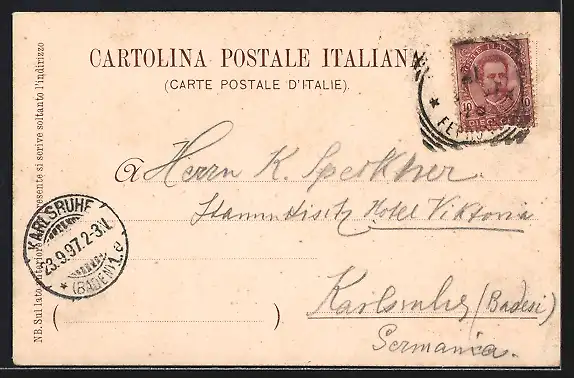 CARTOLINA POSTALE ITALIANA
(CARTE POSTALE D'ITALIE).
POSTE ITALIANE
10 10
FERRO
a Herrn K.
Stammtisch Hotel Viktoria
Karlsruhe (Baden)
Germania.
KARLSRUHE
23.9.97.2-3N.
1.c
* (BADEN)
( )
NB. Sul lato anteriore presente si scrive soltanto l'indirizzo